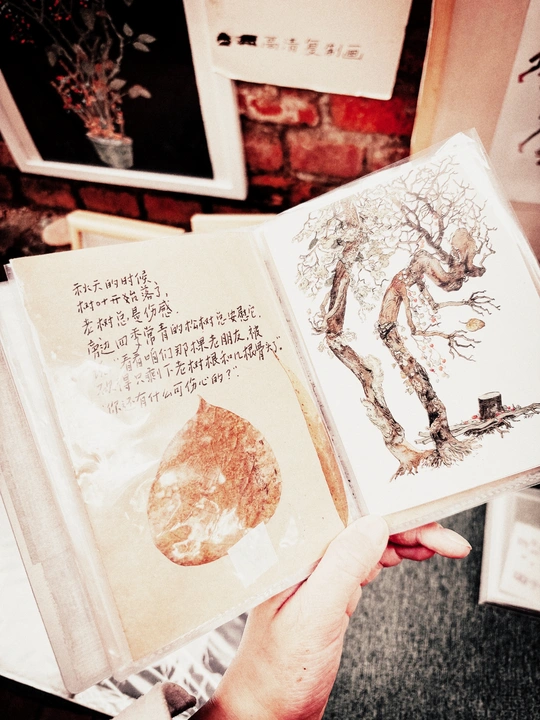 高清复制画
秋天的时候,
树叶开始落了,
老树总是伤感,
旁边四季常青的松树总安慰它,
"看看咱们那棵老朋友,被
只剩下老树根和几根骨头了,
你还有什么可伤心的?"